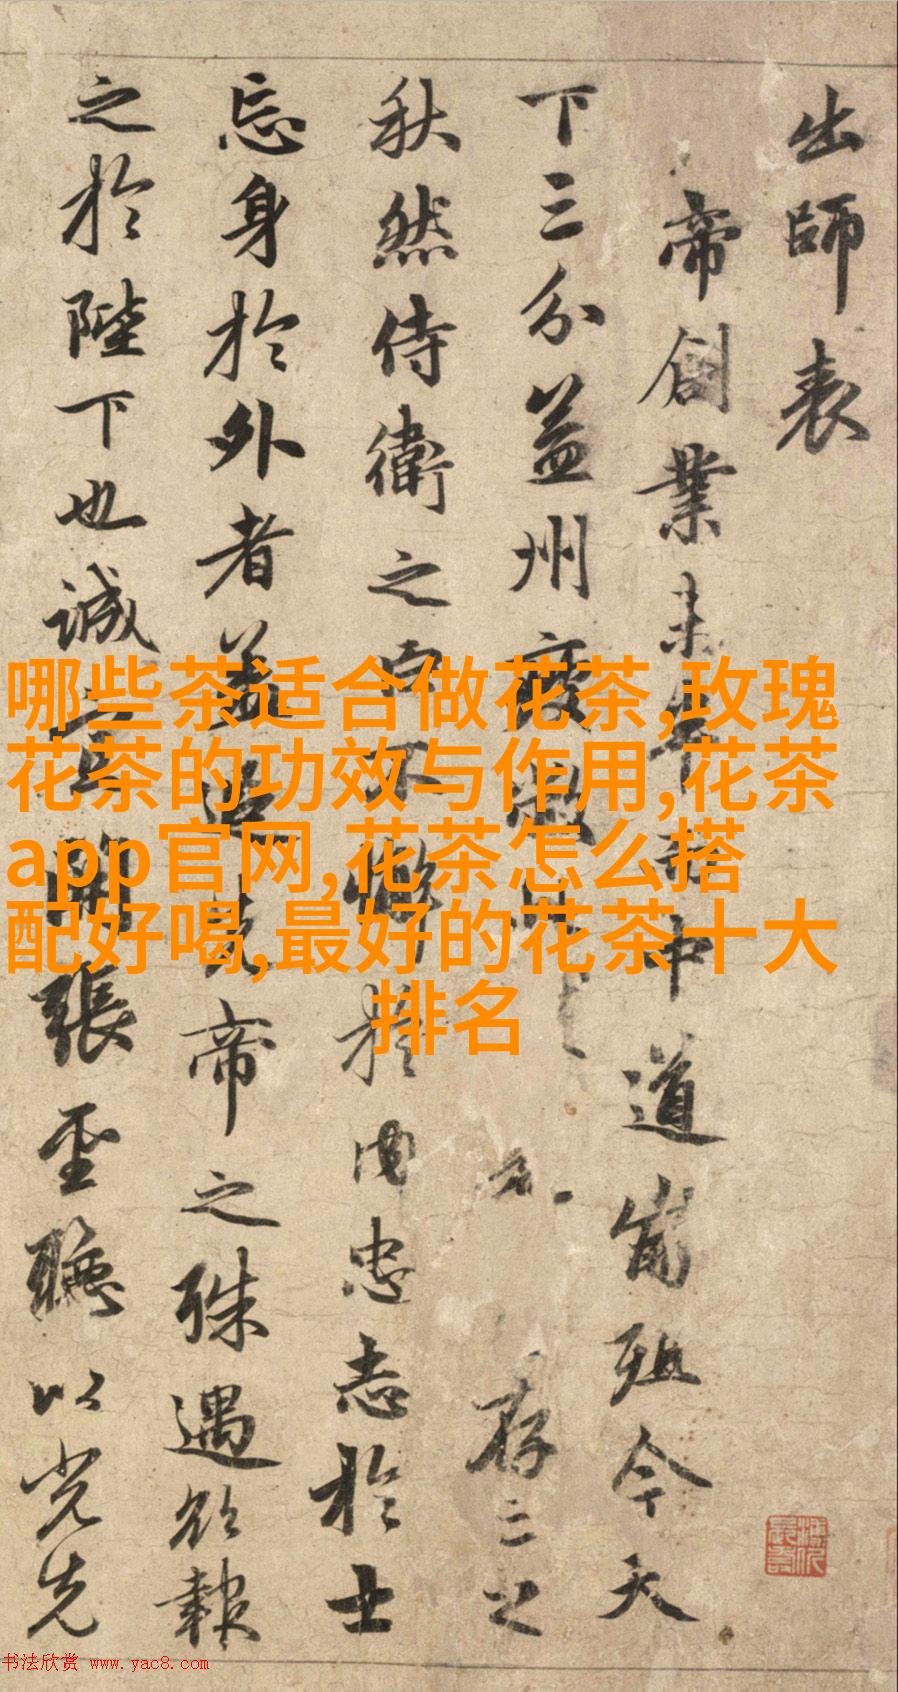 出師表
帝創業未半而中道崩殂今天
下三分益州疲敝此存亡之
秋然侍衛之臣不懈於内忠志於士
忘身於外者蓋追先帝之殊遇欲報
之於陛下也誠宜開張聖聽以光先
哪些茶适合做花茶,玫瑰
花茶的功效与作用,花茶
app官网,花茶怎么搭
配好喝,最好的花茶十大
排名
书法欣赏 www.yac8.com